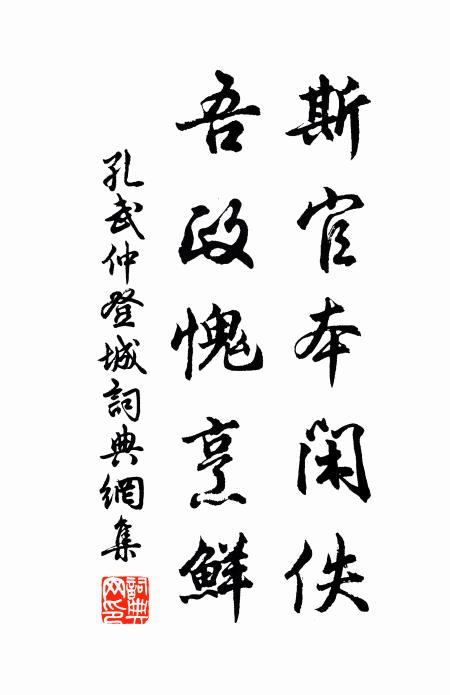 斯官本闲佚
吾政愧烹鮮
孔武仲登城詞典網集
詞典網印